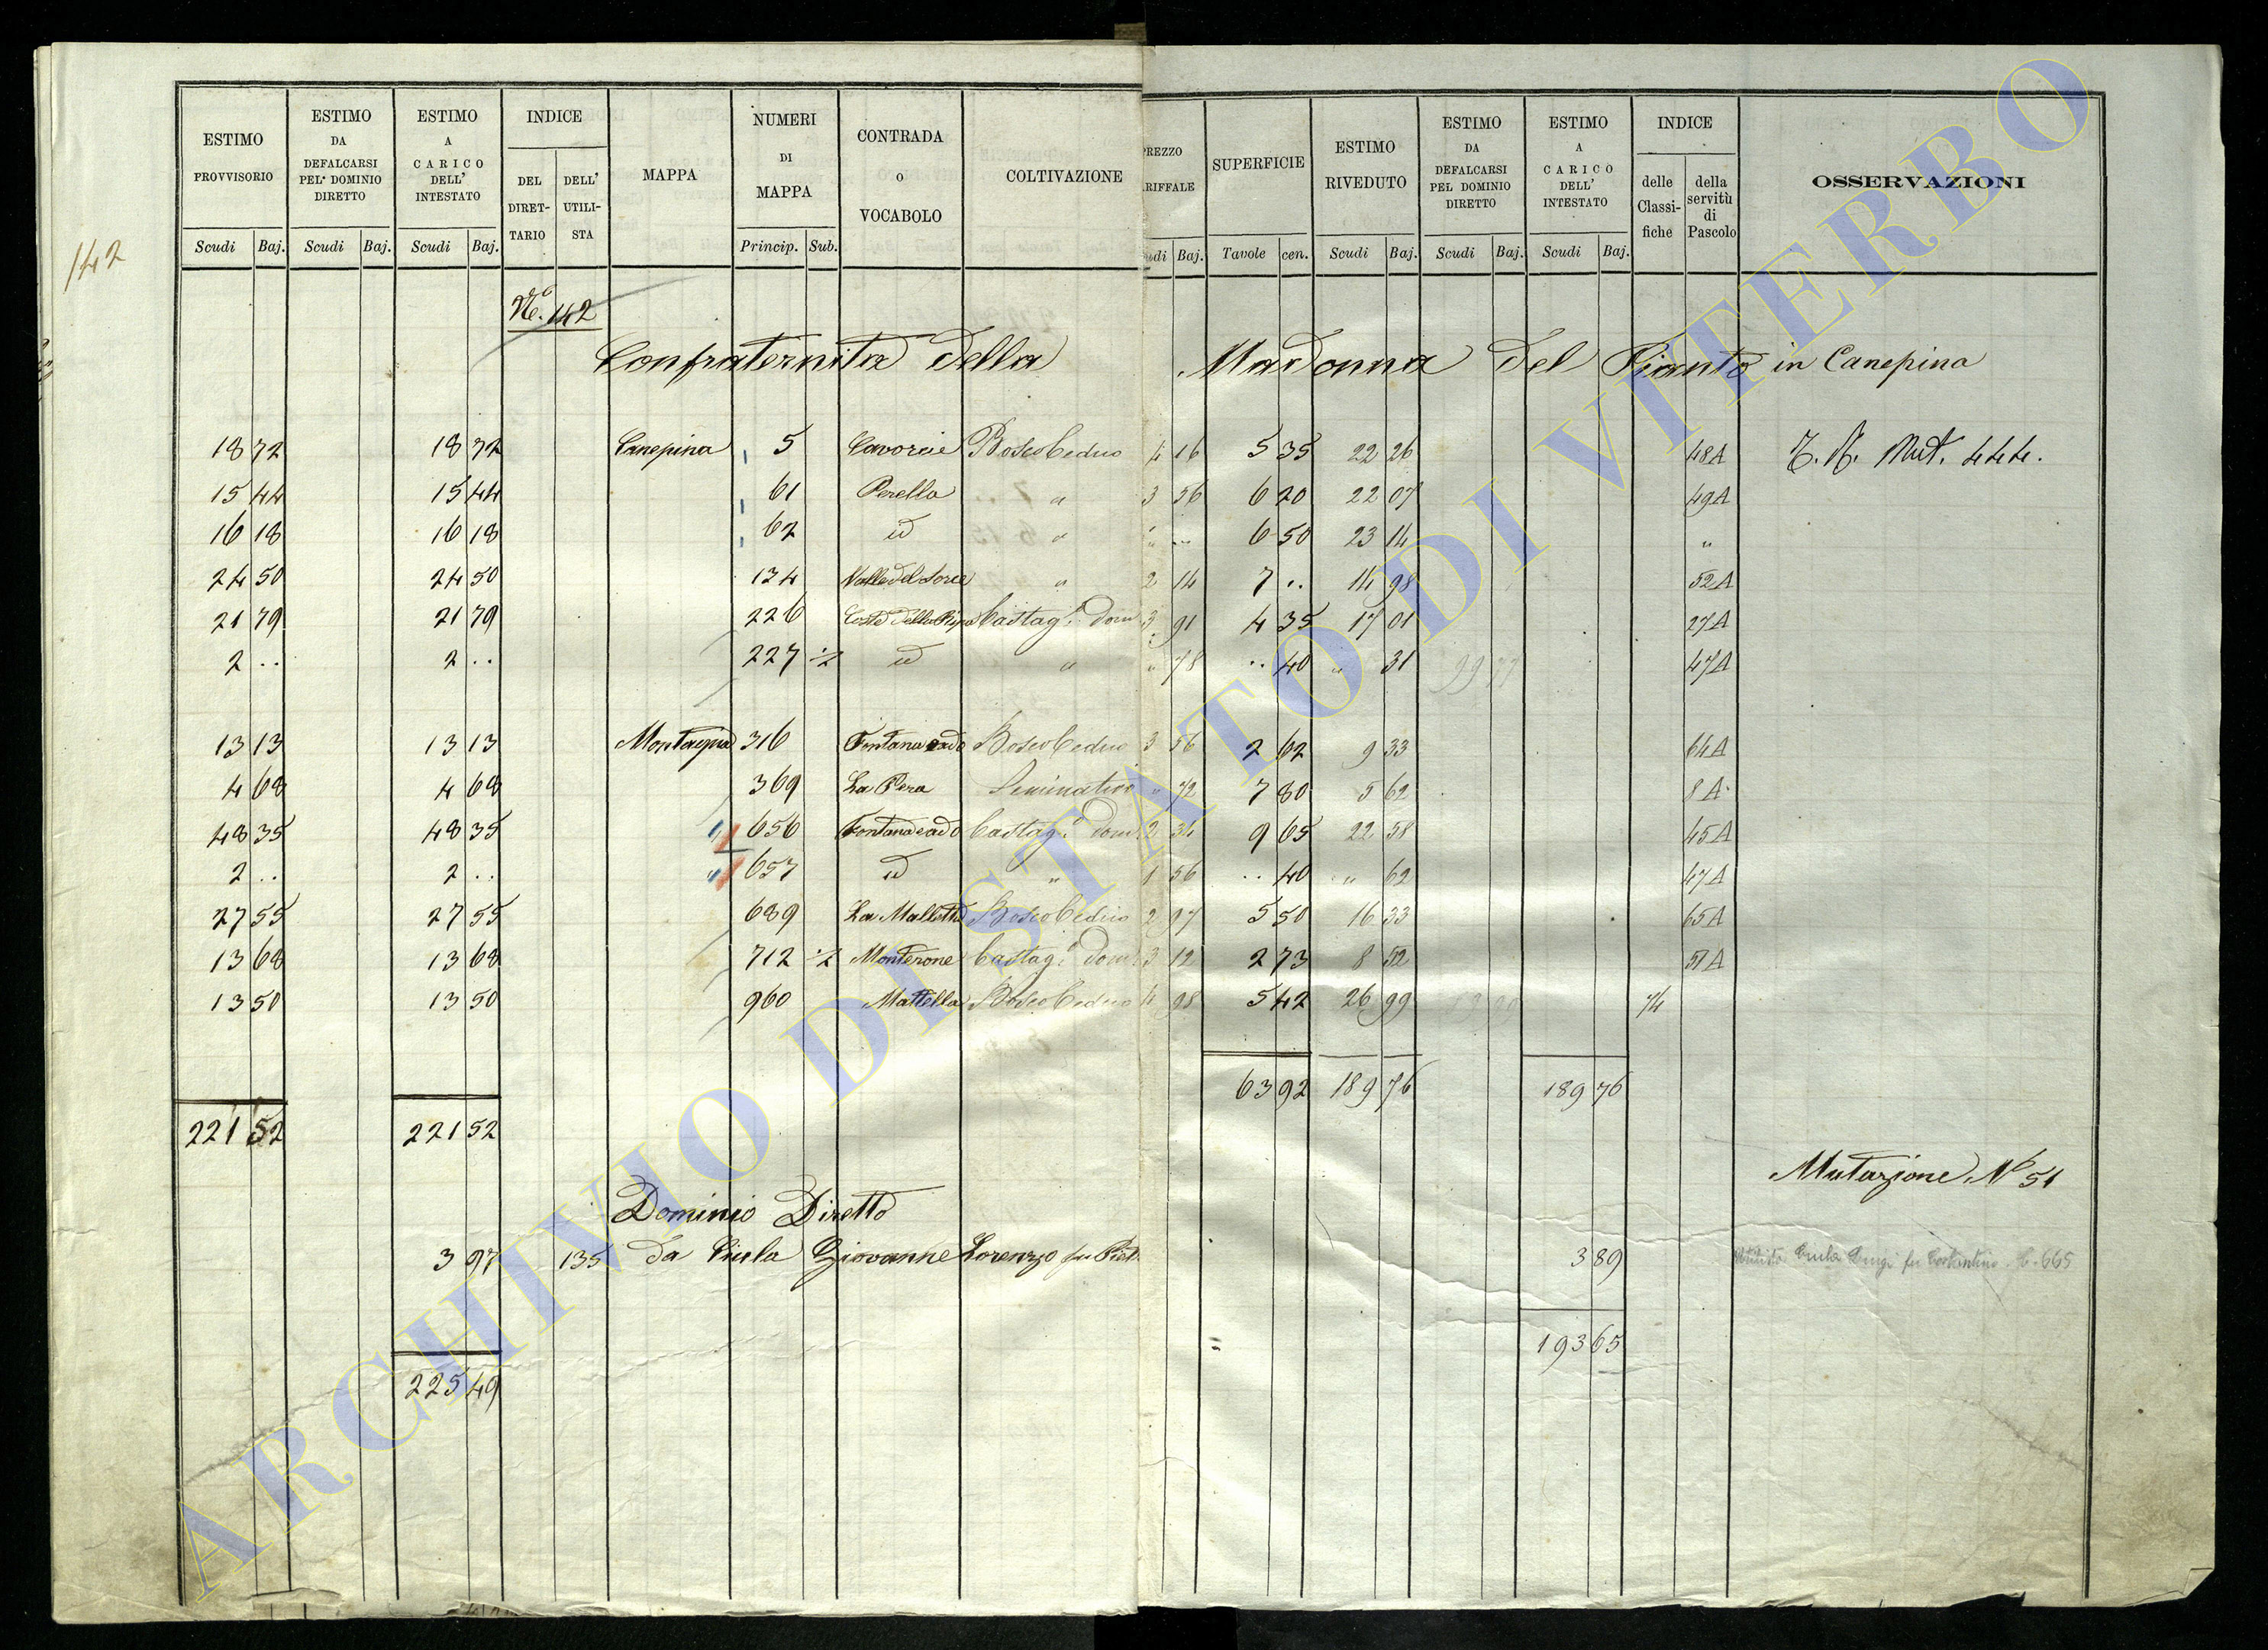 142
ESTIMO PROVVISORIO | ESTIMO DA DEFALCARSI PEL DOMINIO DIRETTO | ESTIMO A CARICO DELL' INTESTATO | INDICE | MAPPA | NUMERI DI MAPPA | CONTRADA o VOCABOLO | COLTIVAZIONE | PREZZO RIFFALE | SUPERFICIE | ESTIMO RIVEDUTO | ESTIMO DA DEFALCARSI PEL DOMINIO DIRETTO | ESTIMO A CARICO DELL' INTESTATO | INDICE | OSSERVAZIONI
DEL DIRETTARIO | DELL' UTILISTA | delle Classifiche | della servitù di Pascolo
Scudi Baj. | Scudi Baj. | Scudi Baj. | Princip. Sub. | udi Baj. | Tavole cen. | Scudi Baj. | Scudi Baj. | Scudi Baj.
No. 142
Confraternita della Madonna del Pianto in Canepina
18 72 | 18 72 | Canepina | 5 | Cavorcie | Bosco Ceduo | 4 16 | 5 35 | 22 26 | 48A | T. N. Mut. 444.
15 44 | 15 44 | 61 | Perella | " | 3 56 | 6 20 | 22 07 | 49A
16 18 | 16 18 | 62 | id | " | " .. | 6 50 | 23 14 | "
24 50 | 24 50 | 134 | Valle del Sorce | " | 2 14 | 7 .. | 14 98 | 52A
21 79 | 21 79 | 226 | Coste della Ripa | Castag. dom | 3 91 | 4 35 | 17 01 | 27A
2 .. | 2 .. | 227 ½ | id | " | " 78 | .. 40 | " 31 | 47A
13 13 | 13 13 | Montagna | 316 | Fontana eado | Bosco Ceduo | 3 56 | 2 62 | 9 33 | 64A
4 68 | 4 68 | 369 | La Pera | Seminativo | " 72 | 7 80 | 5 62 | 8A.
48 35 | 48 35 | 656 | Fontana eado | Castag. dom | 2 34 | 9 65 | 22 58 | 45A
2 .. | 2 .. | 657 | id | " | 1 56 | .. 40 | " 62 | 47A
27 55 | 27 55 | 689 | La Malletta | Bosco Ceduo | 2 97 | 5 50 | 16 33 | 65A
13 68 | 13 68 | 712 ½ | Monterone | Castag. dom | 3 12 | 2 73 | 8 52 | 51A
13 50 | 13 50 | 960 | Mattella | Bosco Ceduo | 4 98 | 5 42 | 26 99 | 74
63 92 | 189 76 | 189 76
221 52 | 221 52
Mutazione No 51
Dominio Diretto
3 97 | 135 | da Ciula Giovanne Lorenzo fu Piet | 3 89 | Utilista Ciula Luigi fu Costantino C. 665
193 65
225 49
ARCHIVIO DI STATO DI VITERBO